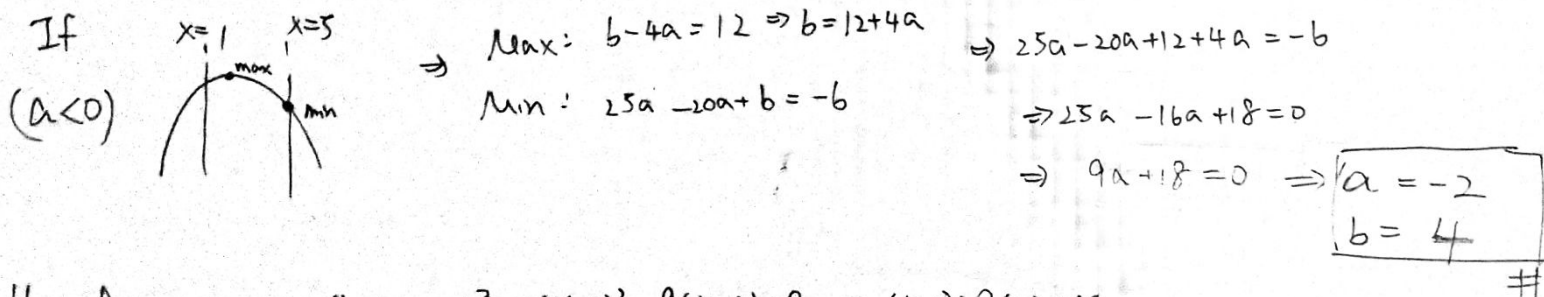 If
(a<0)
x=1 x=5
max
min
⇒ Max: b-4a=12 ⇒ b=12+4a
Min: 25a-20a+b=-6
⇒ 25a-20a+12+4a=-6
⇒ 25a-16a+18=0
⇒ 9a+18=0 ⇒ a=-2
b=4
#